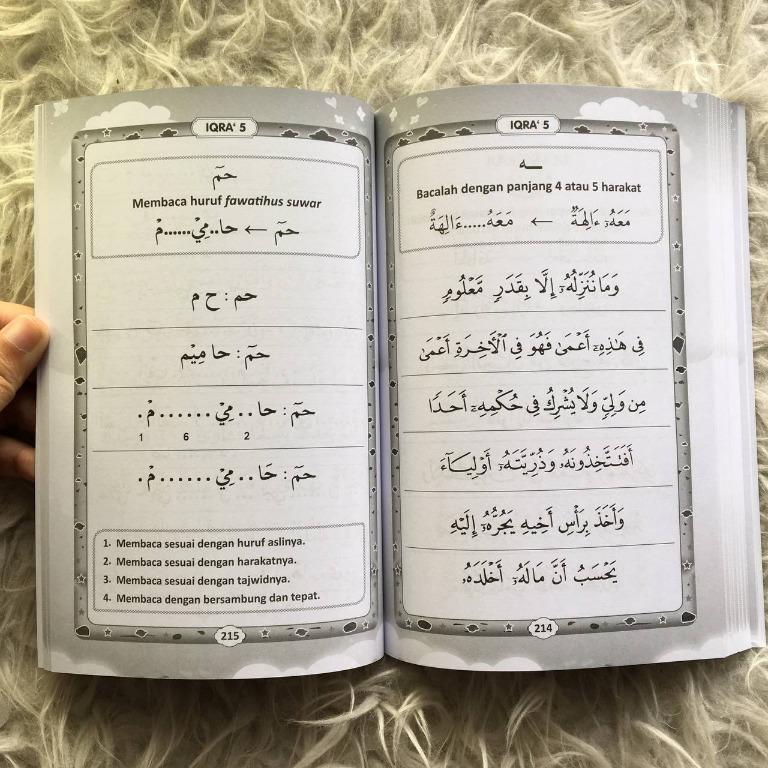 IQRA' 5
ـــه
Bacalah dengan panjang 4 atau 5 harakat
مَعَهُۥٓ ءَالِهَةٌ ← مَعَهُ.....ءَالِهَةٌ
وَمَا نُنَزِّلُهُۥٓ إِلَّا بِقَدَرٍ مَّعْلُومٍ
فِى هَٰذِهِۦٓ أَعْمَىٰ فَهُوَ فِى ٱلْأَخِرَةِ أَعْمَىٰ
مِن وَلِىٍّ وَلَا يُشْرِكُ فِى حُكْمِهِۦٓ أَحَدًا
أَفَتَتَّخِذُونَهُۥ وَذُرِّيَّتَهُۥٓ أَوْلِيَآءَ
وَأَخَذَ بِرَأْسِ أَخِيهِ يَجُرُّهُۥٓ إِلَيْهِ
يَحْسَبُ أَنَّ مَالَهُۥٓ أَخْلَدَهُۥ
214
IQRA' 5
حمٓ
Membaca huruf fawatihus suwar
حمٓ ← حا..مِيْ......مْ
حم : ح م
حمٓ : حا مِيْم
حمٓ : حا..مِيْ......مْ.
1 6 2
حمٓ : حَا..مِيْ......مْ.
1. Membaca sesuai dengan huruf aslinya.
2. Membaca sesuai dengan harakatnya.
3. Membaca sesuai dengan tajwidnya.
4. Membaca dengan bersambung dan tepat.
215